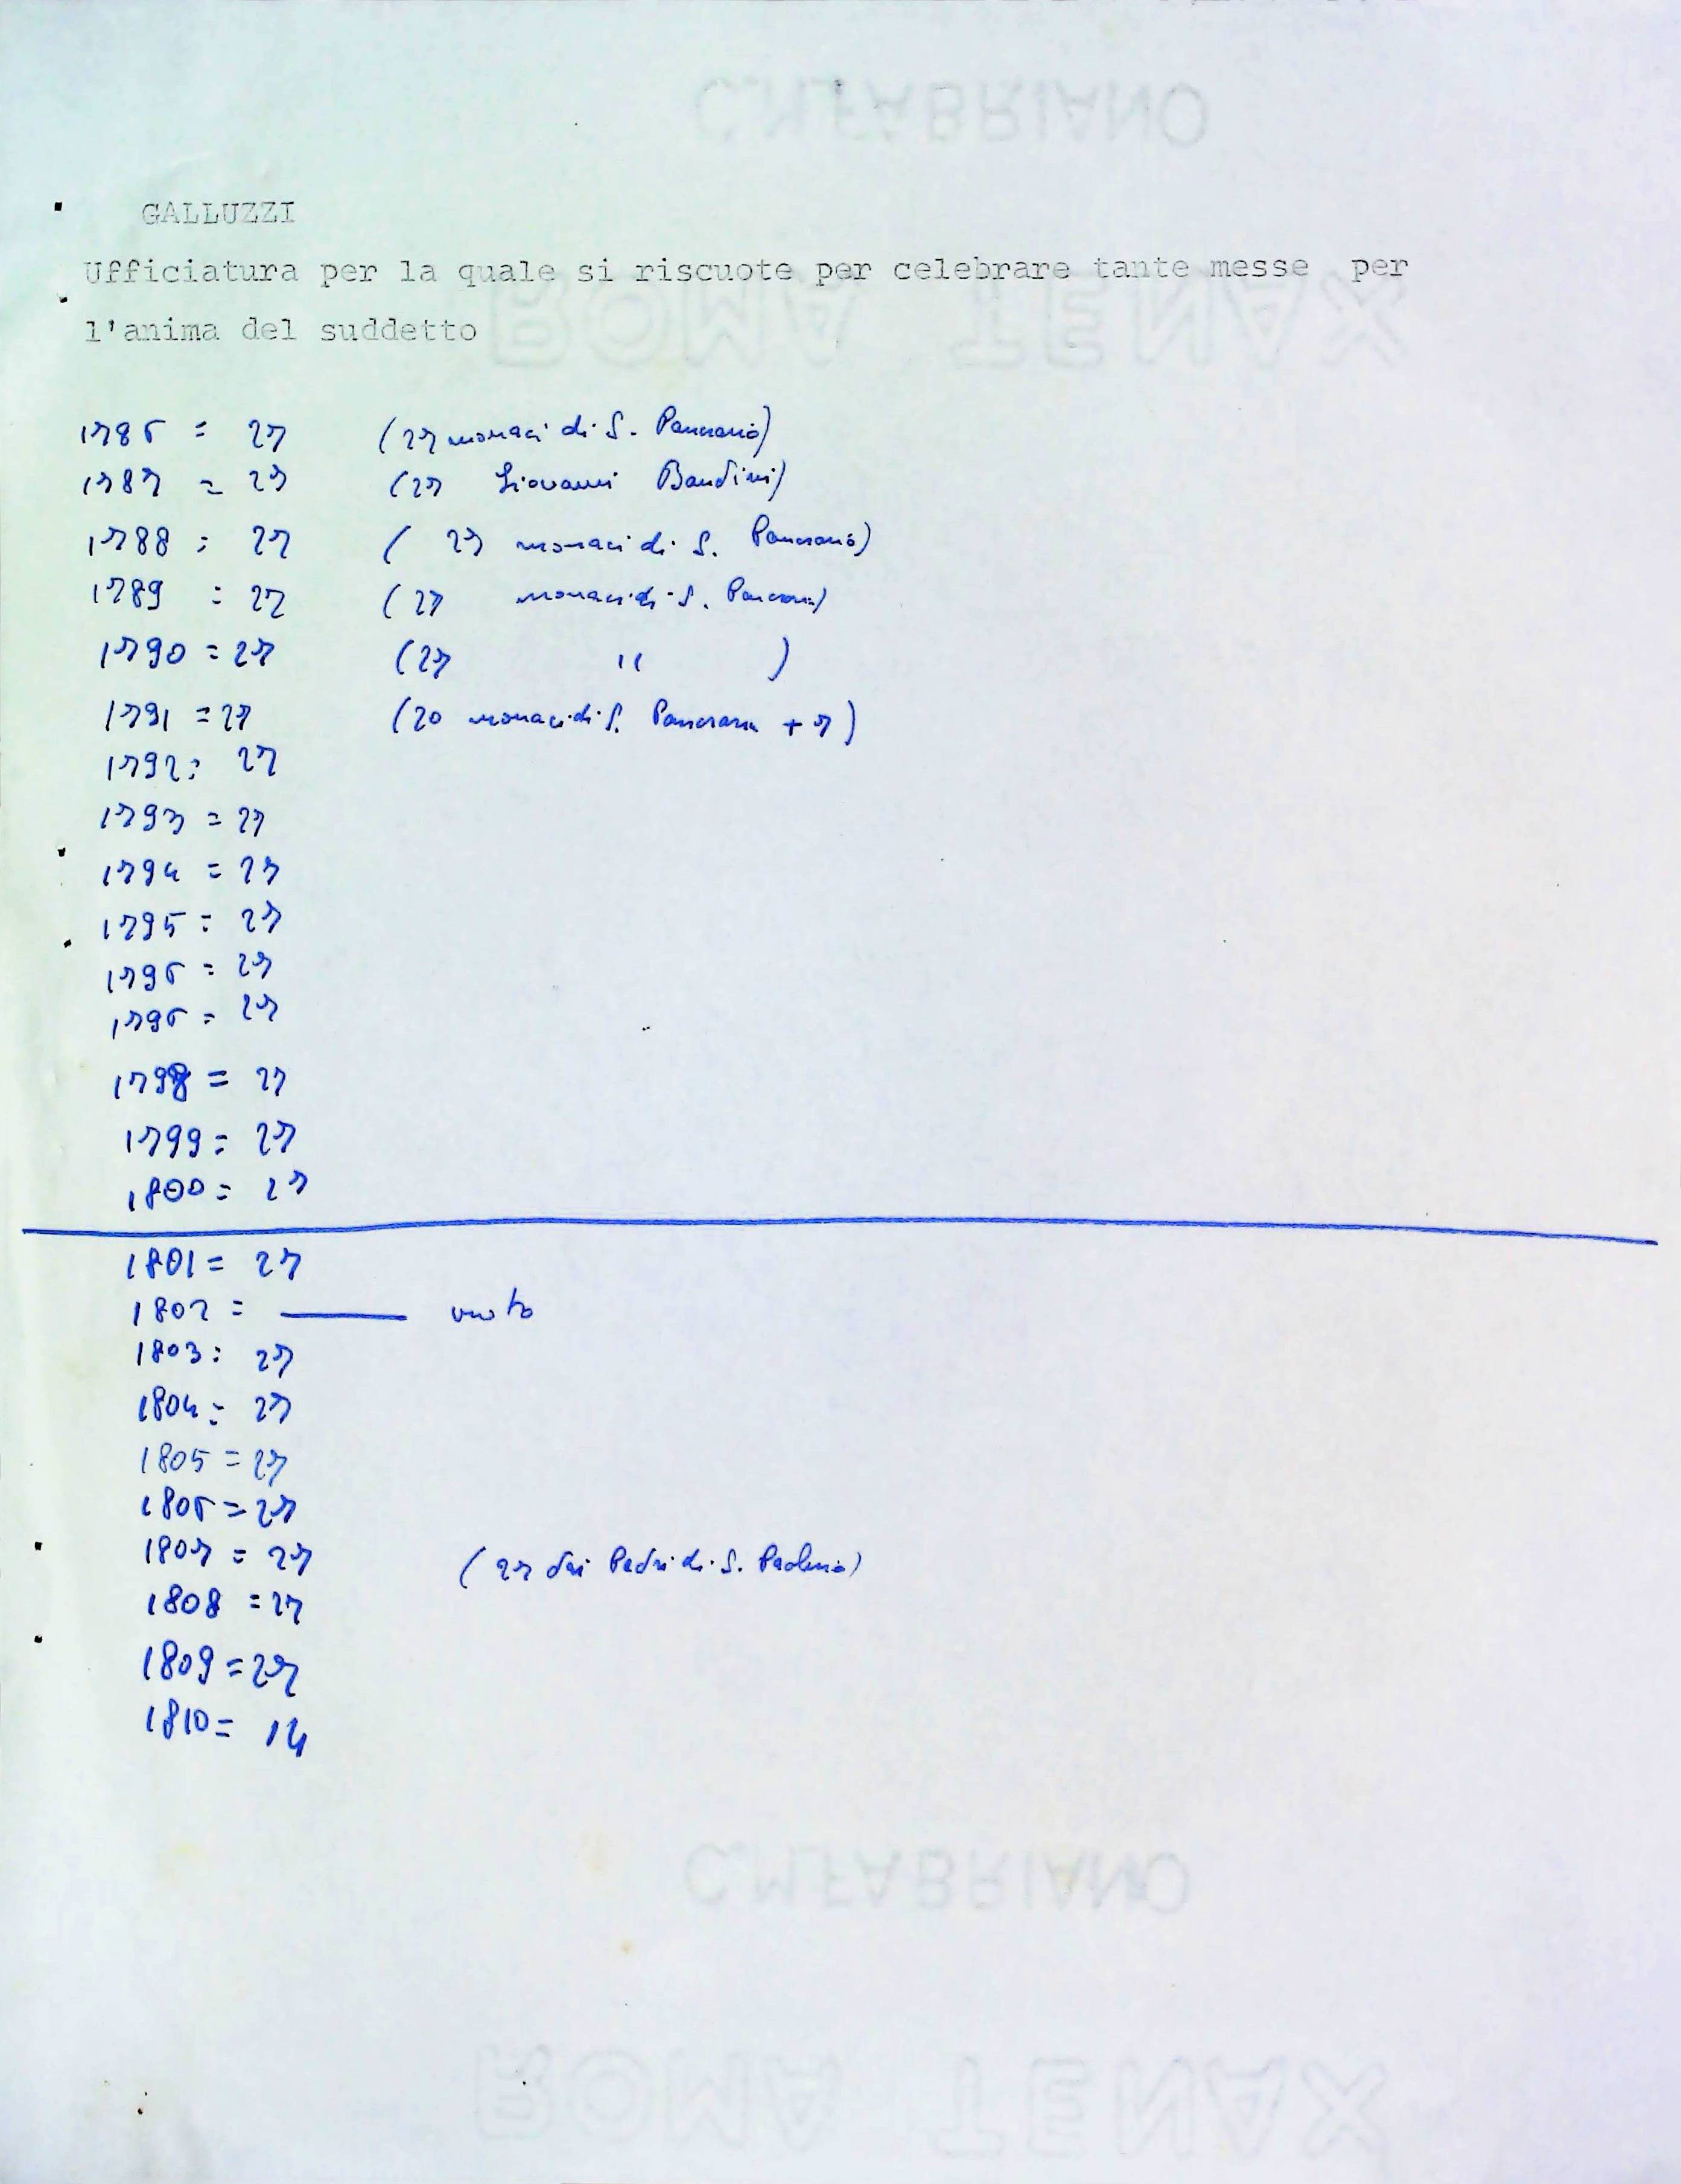 C.M.FABRIANO
GALLUZZI
Ufficiatura per la quale si riscuote per celebrare tante messe per
ROMA TENAX
l'anima del suddetto
1786 = 27 (27 monaci di S. Pancrazio)
1787 = 27 (27 Giovanni Bandini)
1788 = 27 ( 27 monaci di S. Pancrazio)
1789 = 27 (27 monaci di S. Pancrazio)
1790 = 27 (27 " )
1791 = 27 (20 monaci di S. Pancrazio + 7)
1792 = 27
1793 = 27
1794 = 27
1795 = 27
1796 = 27
1796 = 27
1798 = 27
1799 = 27
1800 = 27
1801 = 27
1802 = —— vuoto
1803 = 27
1804 = 27
1805 = 27
1806 = 27
1807 = 27 (27 dai Padri di S. Paolino)
1808 = 27
1809 = 27
1810 = 14
C.M.FABRIANO
ROMA TENAX